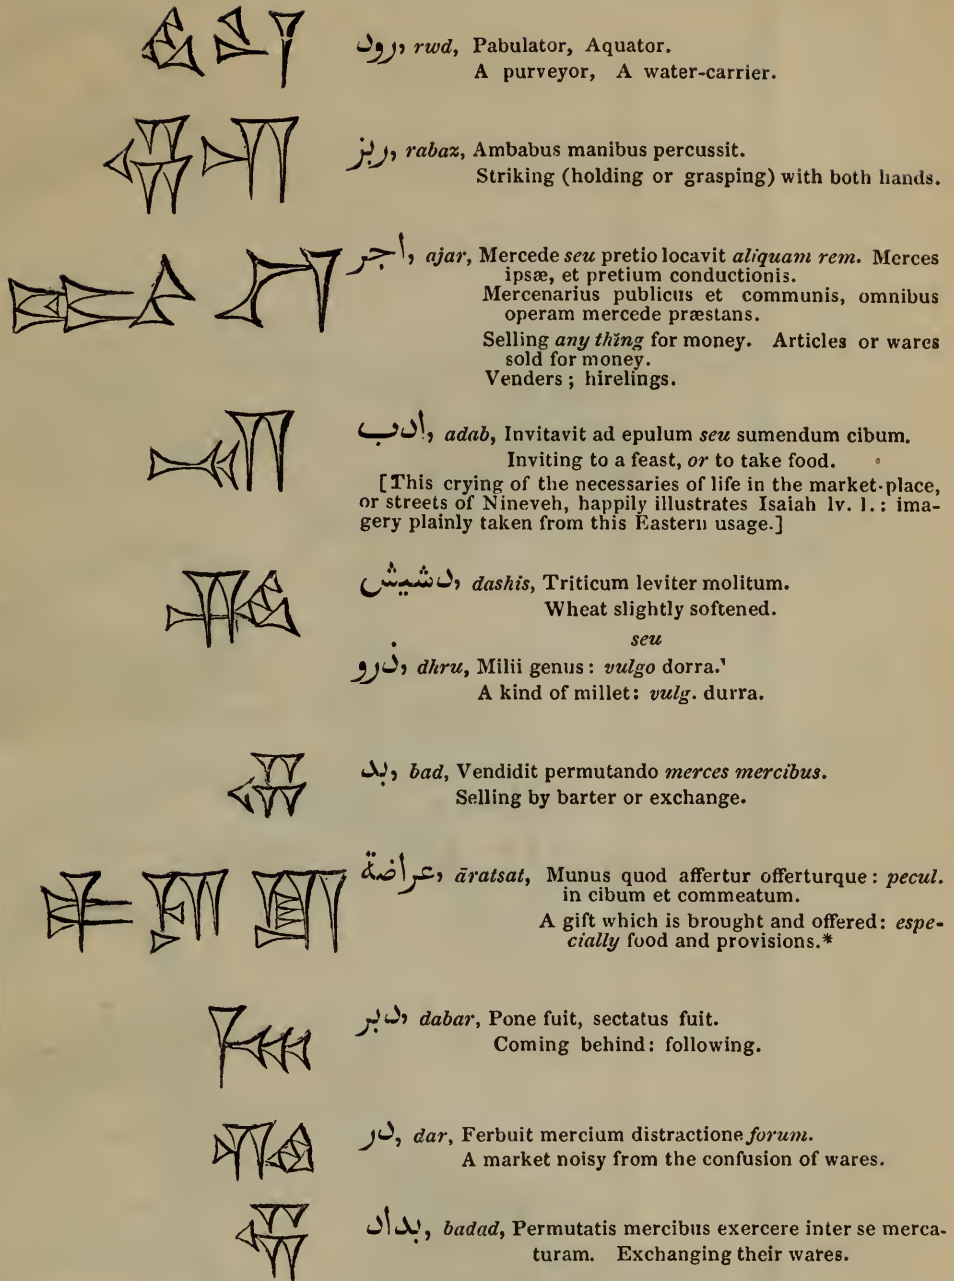 رود, rwd, Pabulator, Aquator.
A purveyor, A water-carrier.
ربز, rabaz, Ambabus manibus percussit.
Striking (holding or grasping) with both hands.
اجر, ajar, Mercede seu pretio locavit aliquam rem. Merces
ipsæ, et pretium conductionis.
Mercenarius publicus et communis, omnibus
operam mercede præstans.
Selling any thing for money. Articles or wares
sold for money.
Venders; hirelings.
ادب, adab, Invitavit ad epulum seu sumendum cibum.
Inviting to a feast, or to take food.
[This crying of the necessaries of life in the market-place,
or streets of Nineveh, happily illustrates Isaiah lv. 1.: ima-
gery plainly taken from this Eastern usage.]
دشيش, dashis, Triticum leviter molitum.
Wheat slightly softened.
seu
ذرو, dhru, Milii genus: vulgo dorra.
A kind of millet: vulg. durra.
بد, bad, Vendidit permutando merces mercibus.
Selling by barter or exchange.
عراضة, āratsat, Munus quod affertur offerturque: pecul.
in cibum et commeatum.
A gift which is brought and offered: espe-
cially food and provisions.*
دبر, dabar, Pone fuit, sectatus fuit.
Coming behind: following.
در, dar, Ferbuit mercium distractione forum.
A market noisy from the confusion of wares.
بداد, badad, Permutatis mercibus exercere inter se merca-
turam. Exchanging their wares.